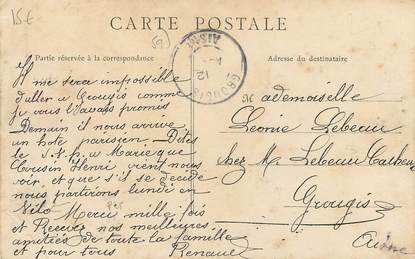 15€
CARTE POSTALE
59
Partie réservée à la correspondance
Adresse du destinataire
GROUGIS
AISNE
12
Il me sera impossible
d'aller à Grougis comme
je vous l'avais promis
Demain il nous arrive
un hote parisien. Dites
le S.V.P. à Marie que
Cousin Henri vient nous
voir, et que s'il se decide
nous partirons lundi en
Vélo Merci mille fois
et Recevez nos meilleures
amitiés de toute la famille
et pour tous Renauel
Mademoiselle
Leonie Lebeau
chez M. Lebeau
Grougis
Aisne